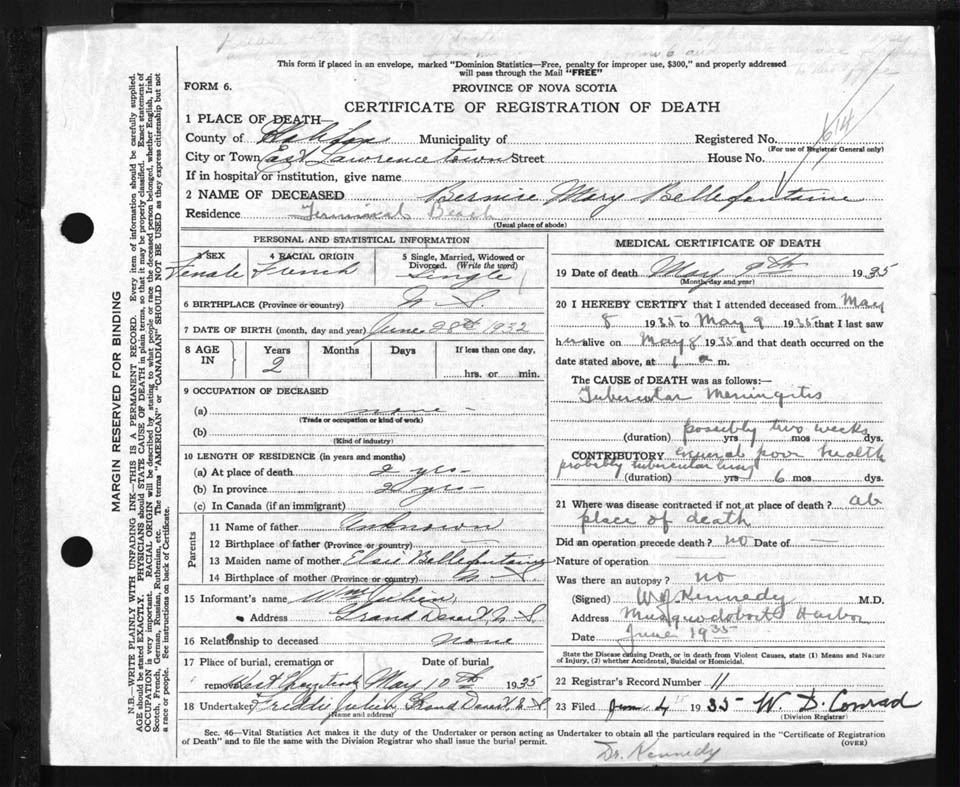 This form if placed in an envelope, marked "Dominion Statistics—Free, penalty for improper use, $300," and properly addressed
will pass through the Mail "FREE"
FORM 6.
PROVINCE OF NOVA SCOTIA
CERTIFICATE OF REGISTRATION OF DEATH
MARGIN RESERVED FOR BINDING
N.B.—WRITE PLAINLY WITH UNFADING INK—THIS IS A PERMANENT RECORD. Every item of information should be carefully supplied.
AGE should be stated EXACTLY. PHYSICIANS should STATE CAUSE OF DEATH in plain terms, so that it may be properly classified. Exact statement of
OCCUPATION is very important. RACIAL ORIGIN will be described by stating to what people or race the deceased person belonged, whether English, Irish,
Scotch, French, German, Russian, Ruthenian, etc. The terms "AMERICAN" or "CANADIAN" SHOULD NOT BE USED as they express citizenship but not
a race or people. See instructions on back of Certificate.
1 PLACE OF DEATH
County of Halifax Municipality of Registered No. 614
(For use of Registrar General only)
City or Town East Lawrencetown Street House No.
If in hospital or institution, give name
2 NAME OF DECEASED Bernice Mary Bellefontaine
Residence Terminal Beach
(Usual place of abode)
PERSONAL AND STATISTICAL INFORMATION
3 SEX 4 RACIAL ORIGIN 5 Single, Married, Widowed or Divorced. (Write the word)
Female French Single
6 BIRTHPLACE (Province or country) N. S.
7 DATE OF BIRTH (month, day and year) June 28th 1932
8 AGE IN Years Months Days If less than one day,
2 hrs. or min.
9 OCCUPATION OF DECEASED
(a) none
(Trade or occupation or kind of work)
(b)
(Kind of industry)
10 LENGTH OF RESIDENCE (in years and months)
(a) At place of death 2 yrs
(b) In province 2 yrs
(c) In Canada (if an immigrant)
Parents
11 Name of father Unknown
12 Birthplace of father (Province or country)
13 Maiden name of mother Elsie Bellefontaine
14 Birthplace of mother (Province or country) N. S.
15 Informant's name Wm Julien
Address Grand Desert, N. S.
16 Relationship to deceased none
17 Place of burial, cremation or removal Date of burial
West Chezzetcook May 10th 1935
18 Undertaker Freddie Julien Grand Desert N. S.
(Name and address)
MEDICAL CERTIFICATE OF DEATH
19 Date of death May 9th 1935
(Month, day and year)
20 I HEREBY CERTIFY that I attended deceased from May
8 1935 to May 9 1935 that I last saw
her alive on May 8 1935 and that death occurred on the
date stated above, at 1 a m.
The CAUSE OF DEATH was as follows:—
Tubercular Meningitis
possibly two weeks
(duration) yrs mos dys.
CONTRIBUTORY General poor health
probably tubercular lung
(duration) yrs 6 mos dys.
21 Where was disease contracted if not at place of death? at
place of death
Did an operation precede death? no Date of —
Nature of operation
Was there an autopsy? no
(Signed) W J Kennedy M.D.
Address Musquodoboit Harbor
Date June 1935
State the Disease causing Death, or in death from Violent Causes, state (1) Means and Nature
of Injury, (2) whether Accidental, Suicidal or Homicidal.
22 Registrar's Record Number 11
23 Filed June 4 1935 W. D. Conrad
(Division Registrar)
Sec. 46—Vital Statistics Act makes it the duty of the Undertaker or person acting as Undertaker to obtain all the particulars required in the "Certificate of Registration
of Death" and to file the same with the Division Registrar who shall issue the burial permit. (OVER)
Dr. Kennedy